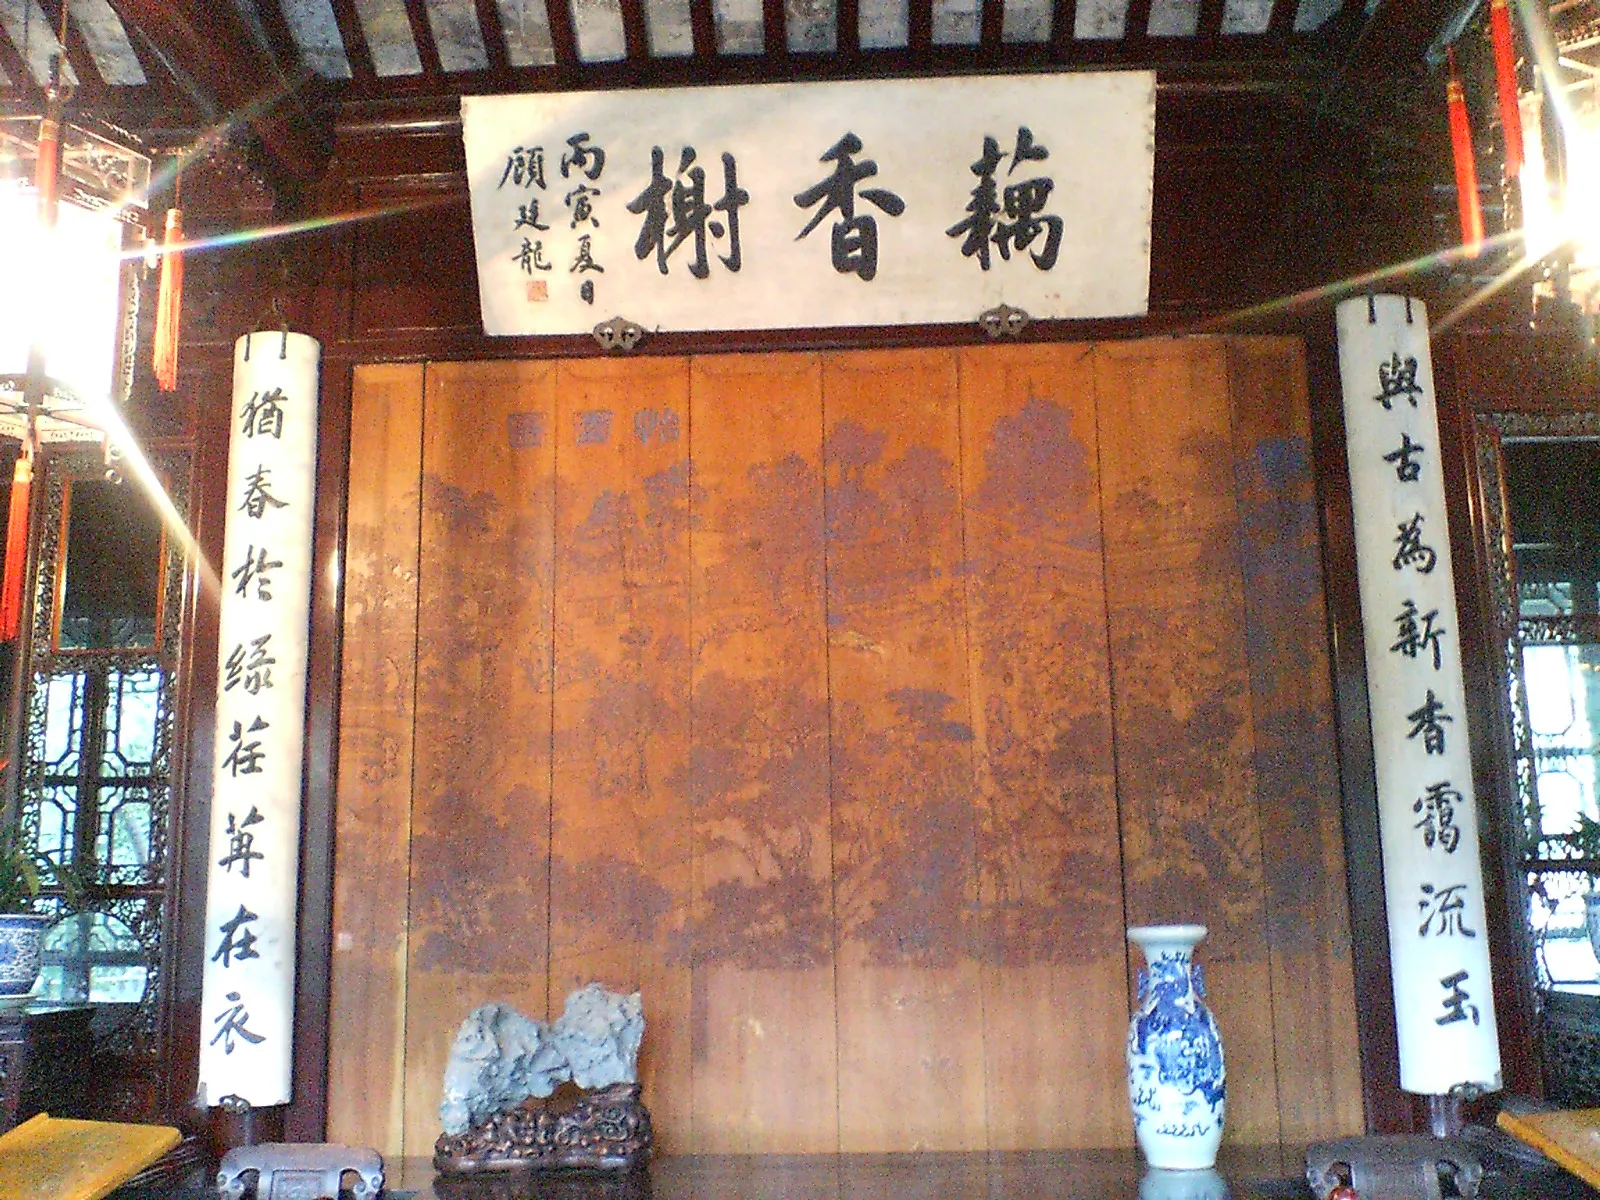 藕香榭
丙寅夏日
顧廷龍
與古為新杳靄流玉
猶春於綠荏苒在衣
怡園圖